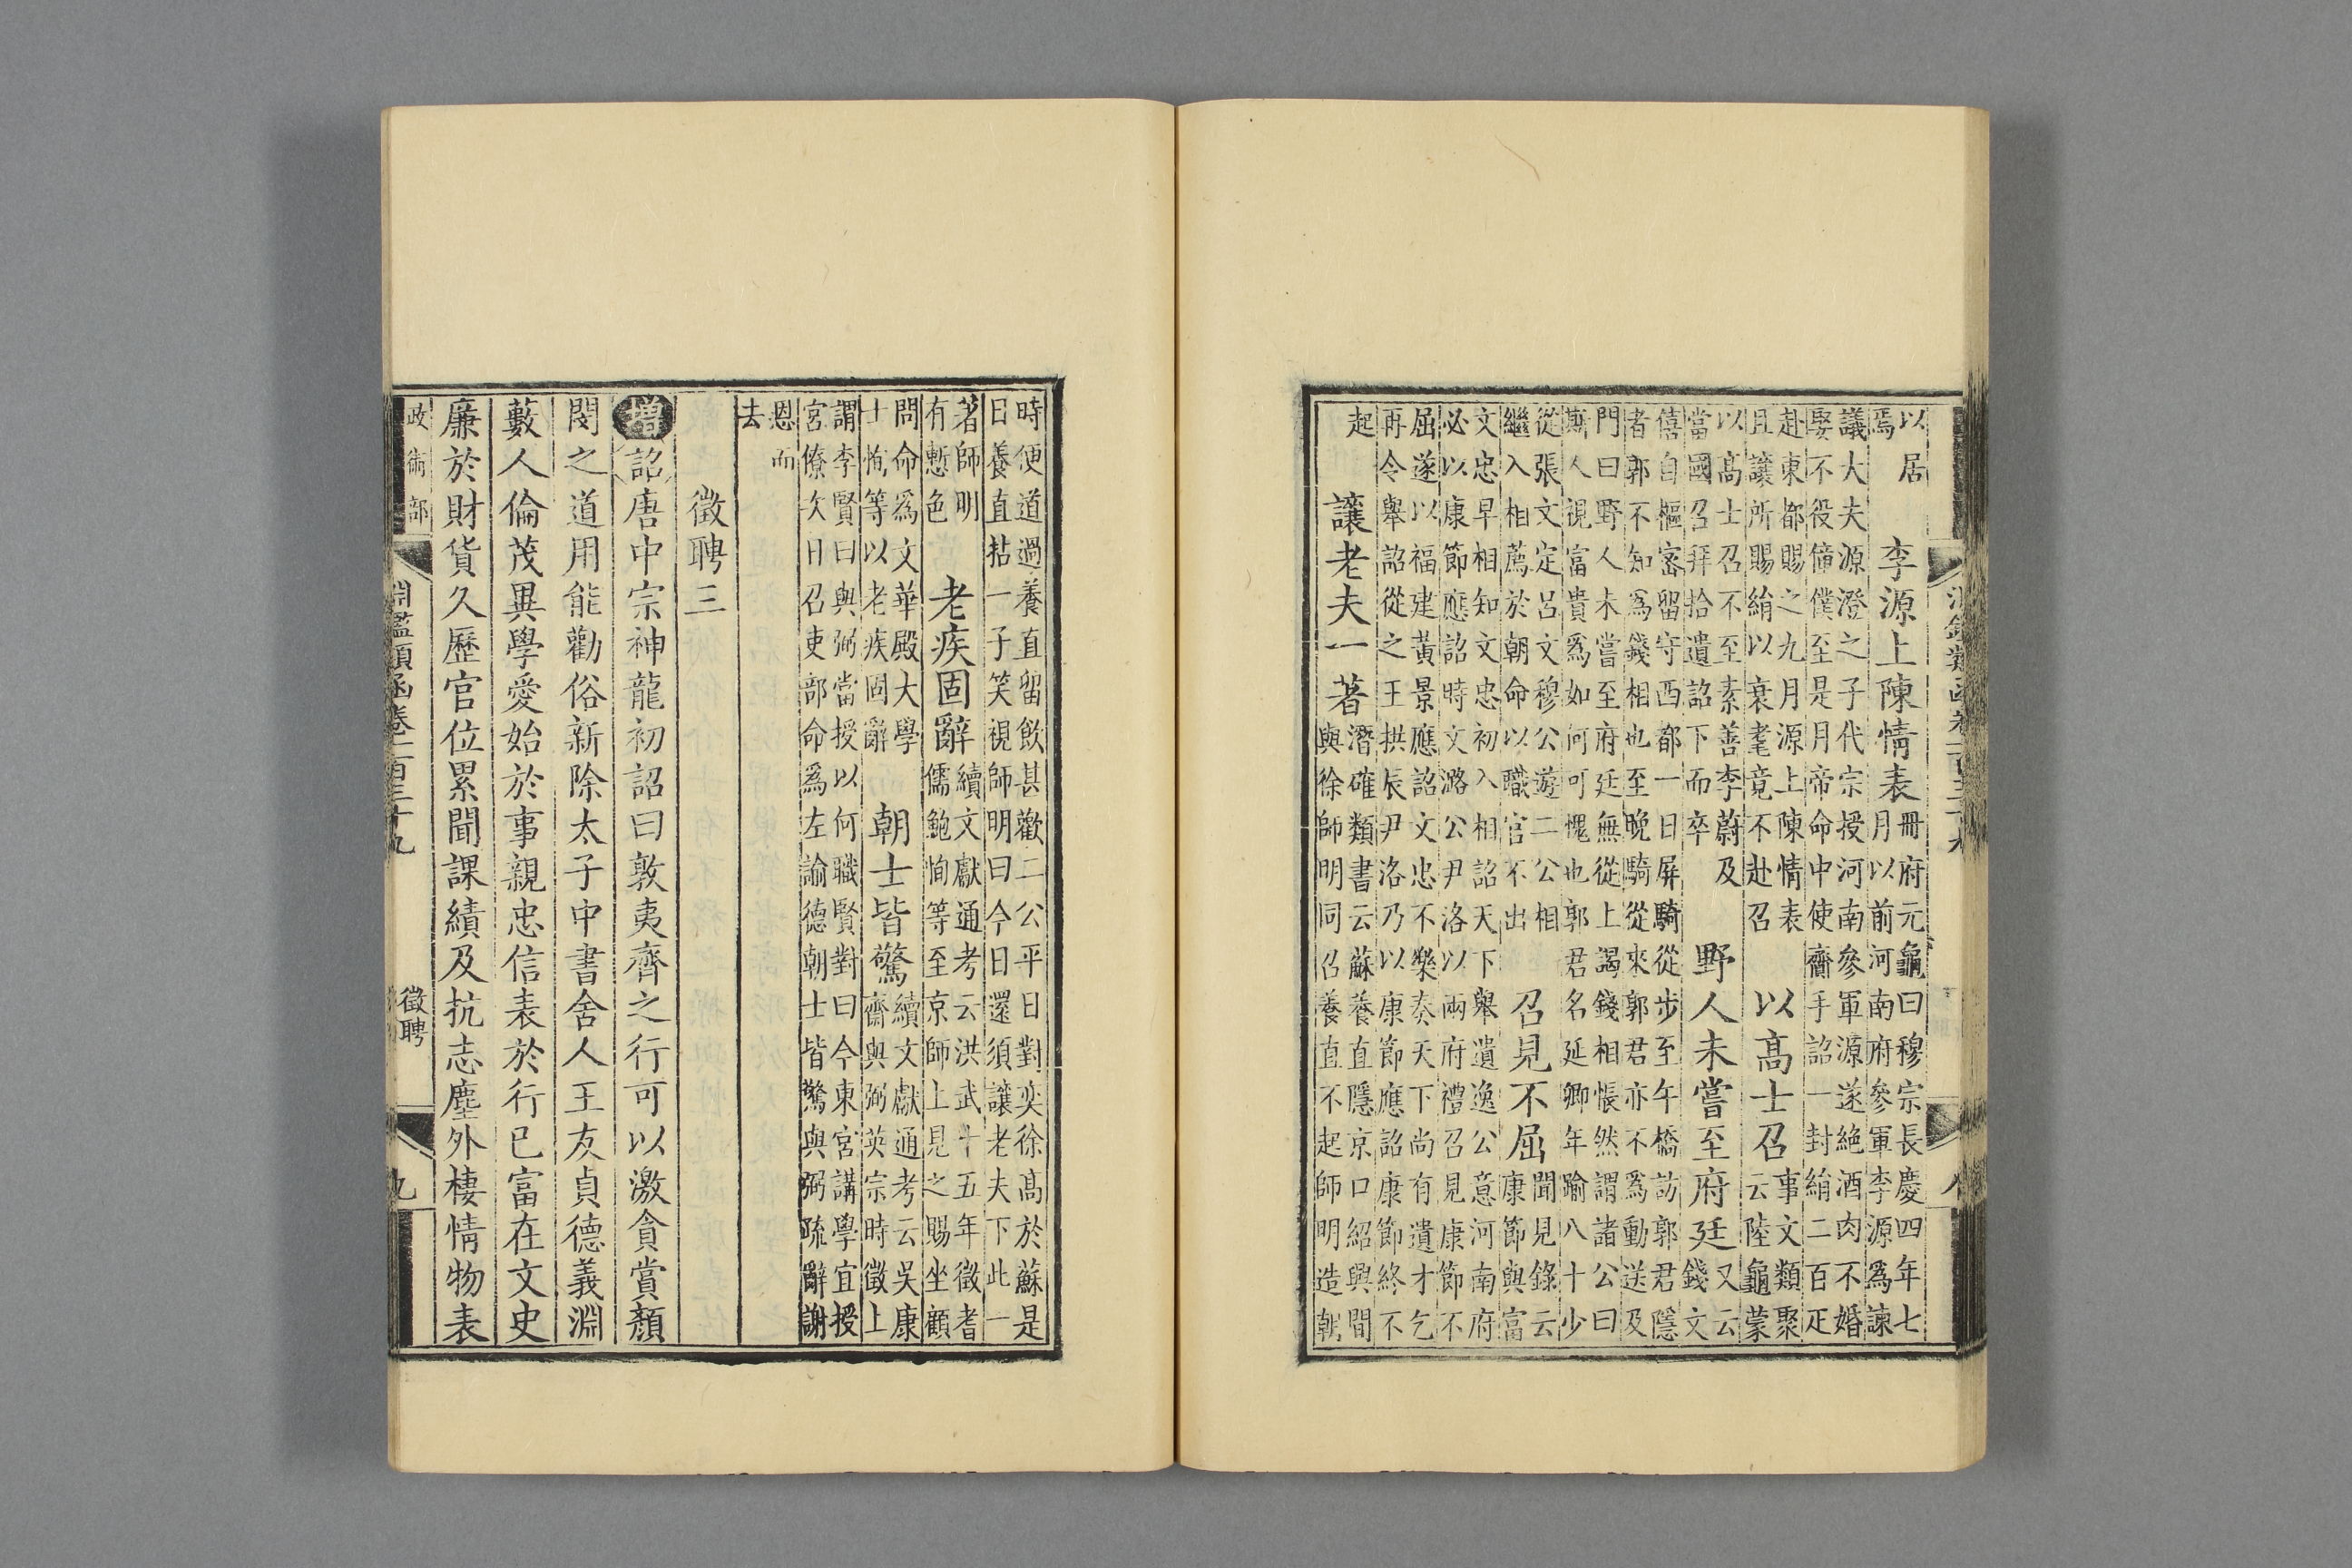 以居
焉
李源上陳情表
冊府元龜曰穆宗長慶四年七
月以前河南府參軍李源爲諫
議大夫源澄之子代宗授河南參軍源遂絶酒肉不婚
娶不役僮僕至是月帝命中使齎手詔一封絹二百疋
赴東都賜之九月源上陳情表
且讓所賜絹以衰耄竟不赴召
以高士召
事文類聚
云陸龜蒙
以高士召不至素善李蔚及
當國召拜拾遺詔下而卒
野人未嘗至府廷
又云
錢文
僖自樞宻留守西都一日屏騎從步至午橋訪郭君隱
者郭不知爲錢相也至晚騎從來郭君亦不爲動送及
門曰野人未嘗至府廷無從上謁錢相悵然謂諸公曰
斯人視富貴爲如何可愧也郭君名延卿年踰八十少
從張文定呂文穆公遊二公相
繼入相薦於朝命以職官不出
召見不屈
聞見錄云
康節與富
文忠早相知文忠初入相詔天下舉遺逸公意河南府
必以康節應詔時文潞公尹洛以兩府禮召見康節不
屈遂以福建黃景應詔文忠不樂奏天下尚有遺才乞
再令舉詔從之王拱辰尹洛乃以康節應詔康節終不
起
讓老夫一著
潛確類書云蘇養直隱京口紹興間
與徐師明同召養直不起師明造朝
時便道過養直留飲甚歡二公平日對奕徐高於蘇是
日養直拈一子笑視師明曰今日還須讓老夫下此一
著師明
有慙色
老疾固辭
續文獻通考云洪武十五年徵耆
儒鮑恂等至京師上見之賜坐顧
問命爲文華殿大學
士恂等以老疾固辭
朝士皆驚
續文獻通考云吳康
齋與弼英宗時徵上
謂李賢曰與弼當授以何職賢對曰今東宮講學宜授
宮僚次日召吏部命爲左諭德朝士皆驚與弼疏辭謝
恩而
去
徵聘三
增詔唐中宗神龍初詔曰敦夷齊之行可以激貪賞顏
閔之道用能勸俗新除太子中書舍人王友貞德義淵
藪人倫茂異學愛始於事親忠信表於行已富在文史
廉於財貨久歷官位累聞課績及抗志塵外棲情物表
政術部
淵鑑類函卷一百三十九
徵聘
九